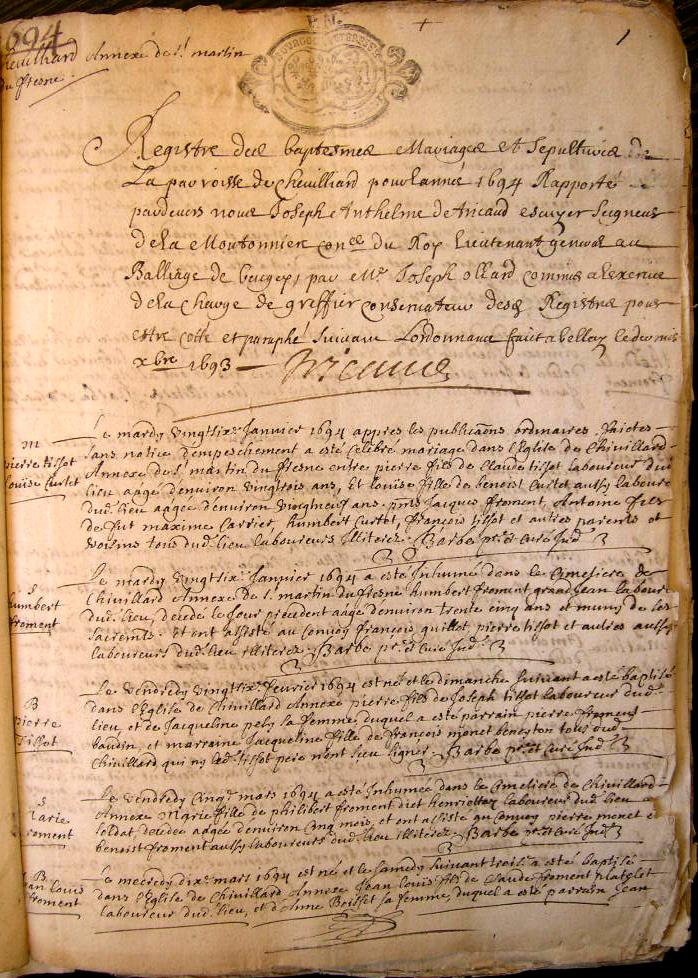 1694
Chevilliard Annexe de St martin
du fresne
1
Registre des baptesmes Mariages et Sepultures de
La parroisse de Cheuilliard pour lannee 1694 Rapporté
pardevers nous Joseph Anthelme escuyer Seigneur
de la Moutonniere con.er du Roy Lieutenant general au
Balliage de beugeys par Me Joseph ollard commis a lexercice
de la charge de greffier conservateur desd Registres pour
estre cotté et paraphé Suivant Lordonnance fait a belley le
xbre 1693
M
pierre tissot
Louise Curtet
Le mardy vingtsix Janvier 1694 appres les publicaons ordinaires faictes
sans notice dempeschement a esté célébré mariage dans l'Eglise de Chivilliard
Annexe de St martin du fresne entre pierre fils de Claude tissot laboureur dud
lieu aagé denviron vingtrois ans, Et Louise fille de benoist Curtet aussy laboureur
dud. lieu aagée denviron vingtneuf ans. pnts Jacques froment, Antoine fils
de fut maxime Carrier, humbert Curtet, françois tissot et autres parents et
voisins tous dud. lieu laboureurs Illiterez. Barbe ptre et Curé Jnd.
S
humbert
froment
Le mardy vingtsix Janvier 1694 a esté Inhumé dans le Cimetiere de
Chivilliard Annexe de St martin du fresne humbert froment grand Jean laboureur
dud. lieu, decedé le Jour precedent aagé denviron trente cinq ans et muny de les
sacremts. Et ont assisté au Convoy françois quillot pierre tissot et autres aussy
laboureurs dud. lieu illiterez. Barbe ptre et Curé Jnd.
B
pierre
Tissot
Le vendredy vingtsix fevrier 1694 est né et le dimanche suivant a esté baptisé
dans l'Eglise de Chivilliard Annexe pierre fils de Joseph tissot laboureur dud
lieu, et de Jacqueline sa femme, duquel a esté parrain pierre froment
baudin, et marraine Jacqueline fille de françois beneyton tous dud
Chivilliard qui ny led. tissot pere nont sceu signer. Barbe ptre et Curé Jnd.
S
Marie
froment
Le vendredy Cinq mars 1694 a esté Inhumée dans le Cimetiere de Chivilliard
Annexe Marie fille de philibert froment diet henriettez laboureur dud. lieu
soldat, decedée aagée denviron Cinq mois, et ont assisté au Convoy pierre monet et
benoist froment aussy laboureurs dud. lieu illiterez. Barbe ptre et Curé Jnd.
B
Jean Louis
froment
Le mecredy dix mars 1694 est né et le samedy suivant treize a esté baptisé
dans l'Eglise de Chivilliard Annexe Jean Louis fils de Claude froment platelet
laboureur dud. lieu, et d'Anne Boisset sa femme, duquel a esté parrain Jean